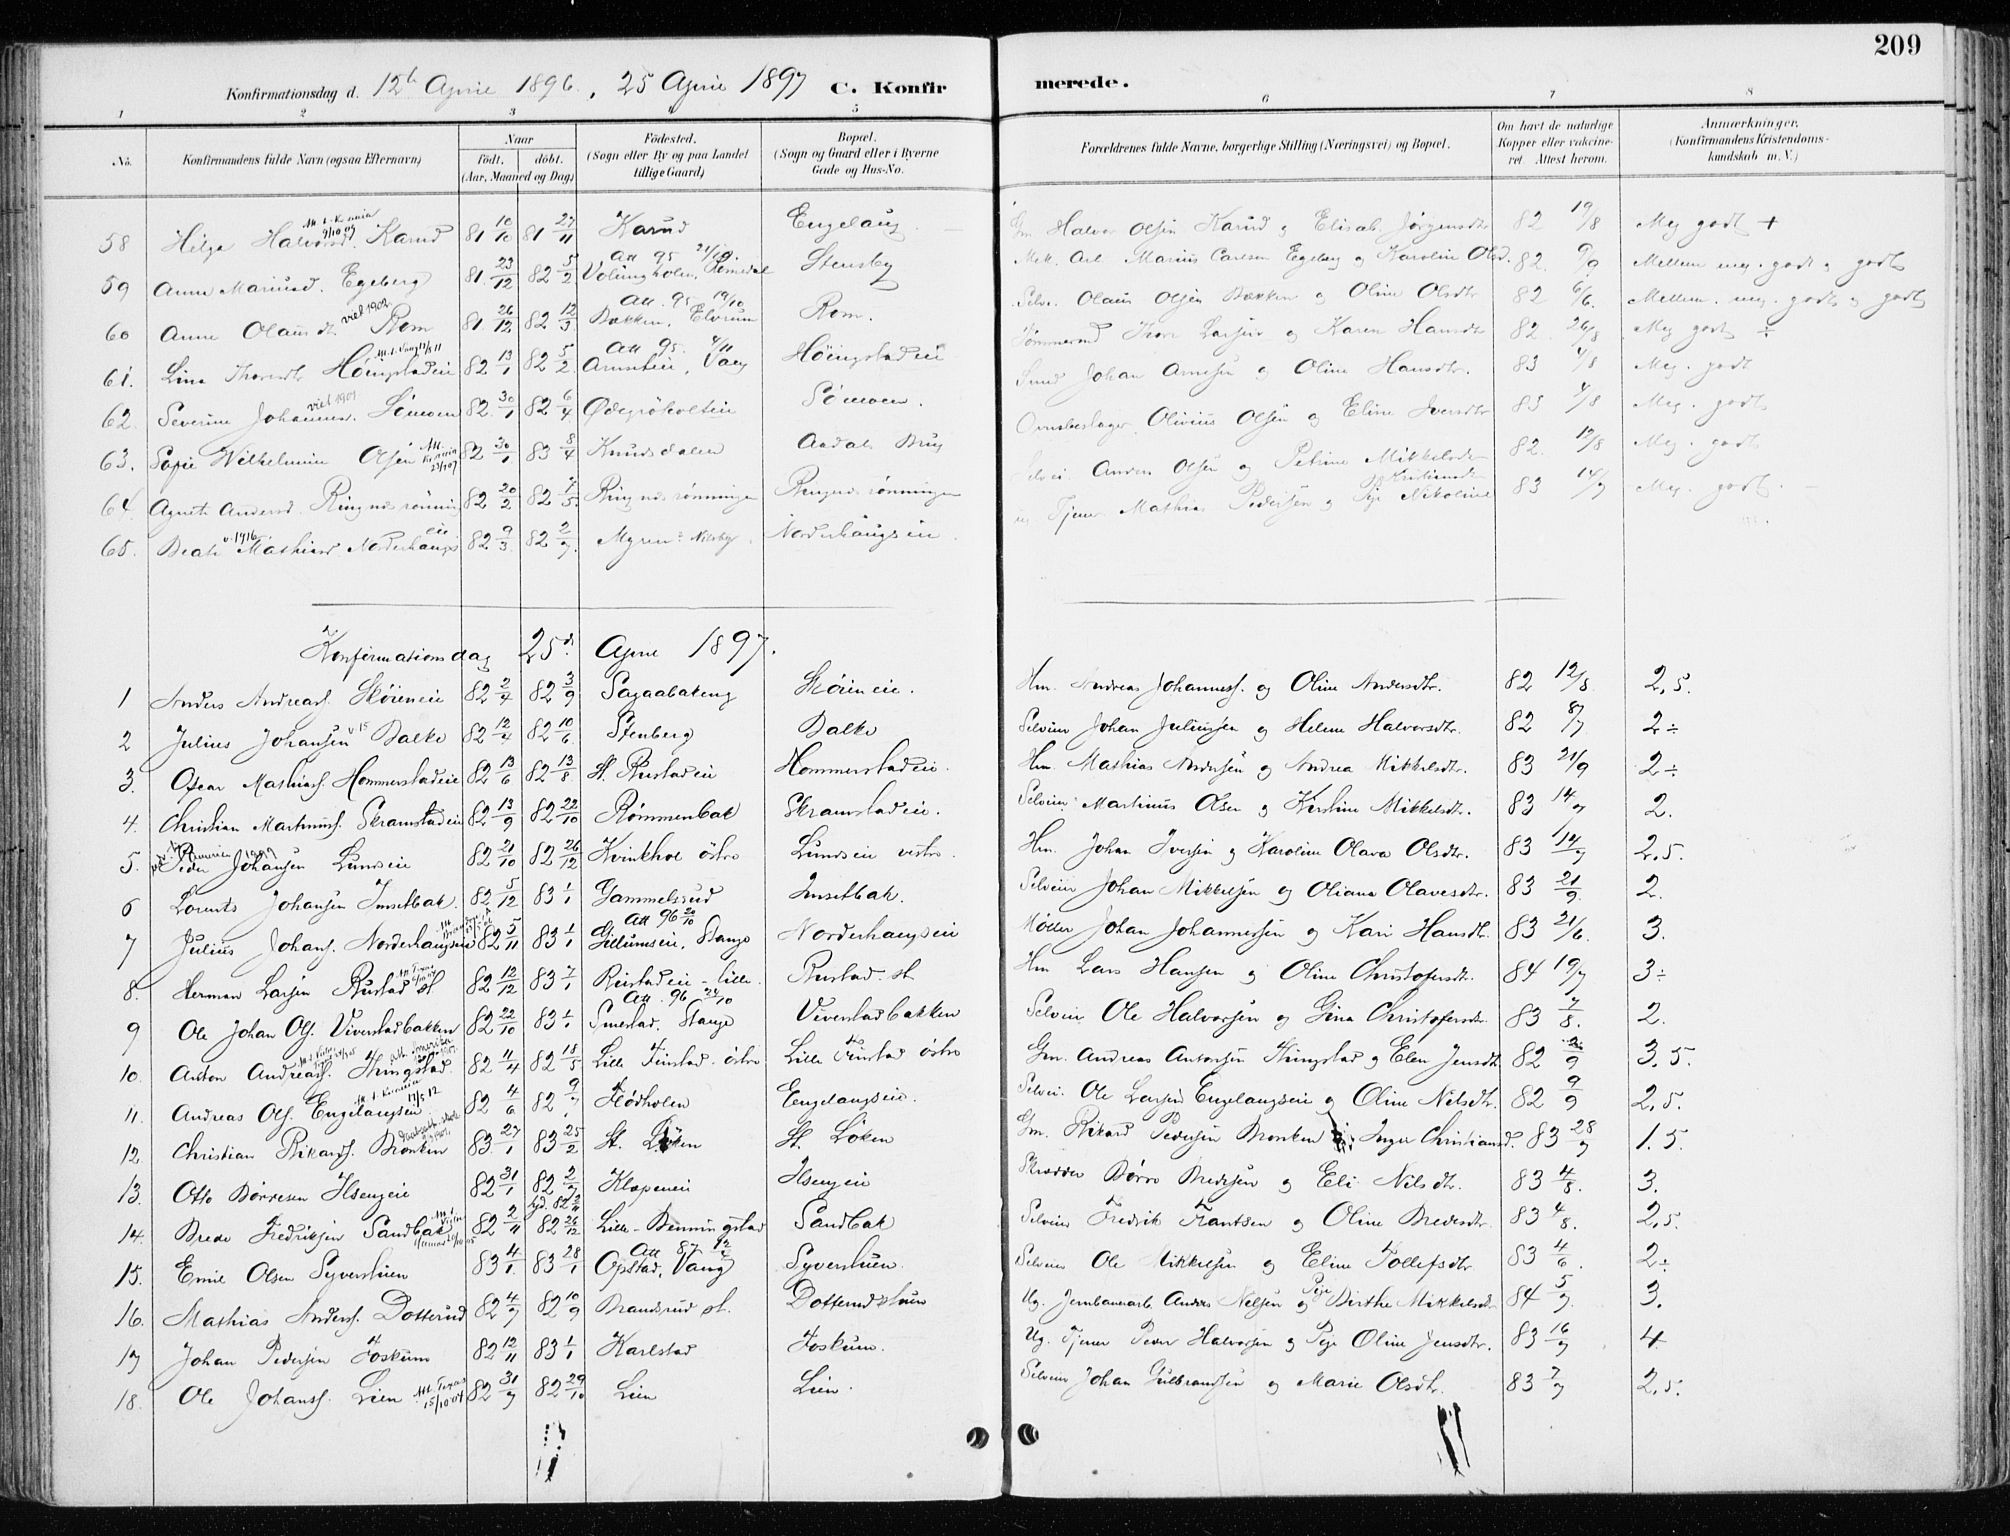 209
Konfirmationsdag d. 12th April 1896, 25 April 1897 C. Konfirmerede.
1 2 3 4 5 6 7 8
No. Konfirmandens fulde Navn (ogsaa Efternavn) Naar født, døbt. (Aar, Maaned og Dag) Fødested. (Sogn eller By og paa Landet tillige Gaard) Bopæl. (Sogn og Gaard eller i Byerne Gade og Hus-No. Forældrenes fulde Navne, borgerlige Stilling (Næringsvei) og Bopæl. Om havt de naturlige Kopper eller vaccineret. Attest herom. Anmærkninger. (Konfirmandens Kristendomskundskab m. V.)
58 Helga Halvorsd. Karud 81 10/10 81 27/11 Karud Engelaug Gm. Halvor Olsen Karud og Elisab. Jørgensdtr 82 19/8 Meg godt +
59 Anne Mariusd. Egeberg 81 23/12 82 5/2 Romedal Stensby Marius Carlsen Egeberg og Karoline Olsd. 82 9/9 Mellem meg. godt og godt
60 Anne Olausdt. viet 1902 Rom 81 26/12 82 12/3 Att. 95 19/10 Bækken, Elvrum Rom. Selvei. Olaus Olsen Bækken og Oline Olsdtr 82 6/6. Mellem. meg. godt og godt
61. Lina Thoresdt. Høingstadeie 82 13/1 82 5/2 Att 95. Arnsteie, Vang Høingstadeie Tømmermd Thore Larsen og Karen Hansdt. 82. 26/8 Meg godt ÷
62. Severine Johannesd. viet 1907 Sømoen 82. 30/1 82 6/4 Sømoen. Smed Johan Arnesen og Oline Hansdtr. 83 4/8 Meg. godt
63. Sofie Wilhelmine Olsen 82 30/1 83 8/4 Knudsdalen Aadals Brug Ovnsbeslager Olivius Olsen og Eline Iversdtr 83 4/8 Meg. godt
64. Agnete Andersd. Ringnesrønning 82 20/2 82 7/5. Ringnesrønningen Ringnesrønningen Selvei. Anders Olsen og Petrine Mikkelsdtr 82. 12/8 Meg. godt
65. Beate v. 1916 Mathiasd Norderhaugseie 82 9/3 82 2/7. Myren Norderhaugseie. Tjener Mathias Pedersen og Pige Nikoline Kristiansdtr 83 14/7 Meg. godt.
Konfirmationsdag 25d. April 1897.
1 Anders Andreass. Skøieneie 82 2/4 82 3/9 Sagaabakeng Skøieneie. Hm. Andreas Johanness. og Oline Andersdtr. 82 12/8 2,5.
2 Julius Johansen v 15 Balke 82 12/4 82 10/6 Stenberg Balke Selveier Johan Juliussen og Helene Halvorsdtr. 82 8/7 2÷
3. Oscar Mathiass. Hommerstadeie 82 13/6 82 13/8 St. Rustadeie Hommerstadeie. Hm. Mathias Andersen og Andrea Mikkelsdtr. 83 21/9 2÷
4. Christian Martinuss. Skramstadeie 82 13/9 82 22/10 Rømmenbak Skramstadeie. Selveier Martinus Olsen og Kirstine Mikkelsdtr. 83 14/7 2.
5. Peder Johansen Lundseie 82 21/10 82 26/12 Kvinkhoe østre Lundseie vestre. Hm. Johan Iversen og Karoline Olava Olsdtr. 83 14/7 2,5.
6 Lorents Johansen Insetbak. 82 5/12 83 1/1 Gammelsrud Insetbak. Selveier Johan Mikkelsen og Oliana Olavesdtr. 83 21/9. 2.
7 Julius Johans. Norderhaugseie 82 5/11 83 1/1 Att 96 20/10 Gillundseie, Stange Norderhaugseie Møller Johan Johannessen og Kari Hansdt. 83 21/6. 3.
8. Herman Larsen Rustad st 82 12/12 83 7/1 Rustadeie - lille. Rustad. st. Hm Lars Hansen og Oline Christofersdtr. 84 19/7 3÷
9 Ole Johan Ols. Viverstadbakken 82 22/10 83 1/1 Att. 96 24/10 Smestad, Stange Viverstadbakken Selveier Ole Halvorsen og Gina Christofersdtr. 83 7/8. 2.
10. Anton Andreass. Hingstad. 82 11/4 82 18/5 Lille Finstad. østre Lille Finstad østre Gm. Andreas Antonsen Hingstad og Elen Jensdt. 82 9 3,5.
11. Andreas Ols. Engelaugseie 82 4/6 82 9/7 Flødholen Engelaugseie. Selvei. Ole Larsen Engelaugseie og Oline Nilsdtr. 82 9/9 2,5.
12. Christian Rikards. Bronken 83. 27/1 83 25/2 St. Løken St. Løken Gm. Rikard Pedersen Bronken og Inger Christiansd. 83 28/7 1.5.
13. Otto Børresen Ilsengeie 82 31/1 82 2/7 Klæpeneie Ilsengeie Skrædder Børre Bredesen og Eli Nilsdtr. 83 4/8. 3.
14. Brede Fredriksen Sandbak 82 2/11 82 26/12 Lille-Benningstad Sandbak Selveier Fredrik Frantsen og Oline Bredesdtr. 83 4/8. 2,5.
15. Emil Olsen Syversluen 83 4/1. 83 28/1 Att 87 12/4 Opstad, Vang Syversluen. Selveier Ole Mikkelsen og Eline Tollefsdtr. 83 4/6. 2÷
16. Mathias Anderss. Dotterud 82 4/7 82 10/9 Brandsrud st. Dotterudstuen Ug. Jernbanearb. Anders Nilsen og Pige Birthe Mikkelsdtr 84 5/7. 3.
17 Johan Pedersen Foskum 82 12/11 83 1/1 Karlstad Foskum. Ug. Tjener Peder Halvorsen og Pige Oline Jensdtr. 83 16/7 4
18. Ole Johanss. Lien Att. Texas 15/10 04 82 31/7 82 29/10 Lien Lien. Selveier Johan Gulbrandsen og Marie Olsdtr. 83 7/7 2,5.